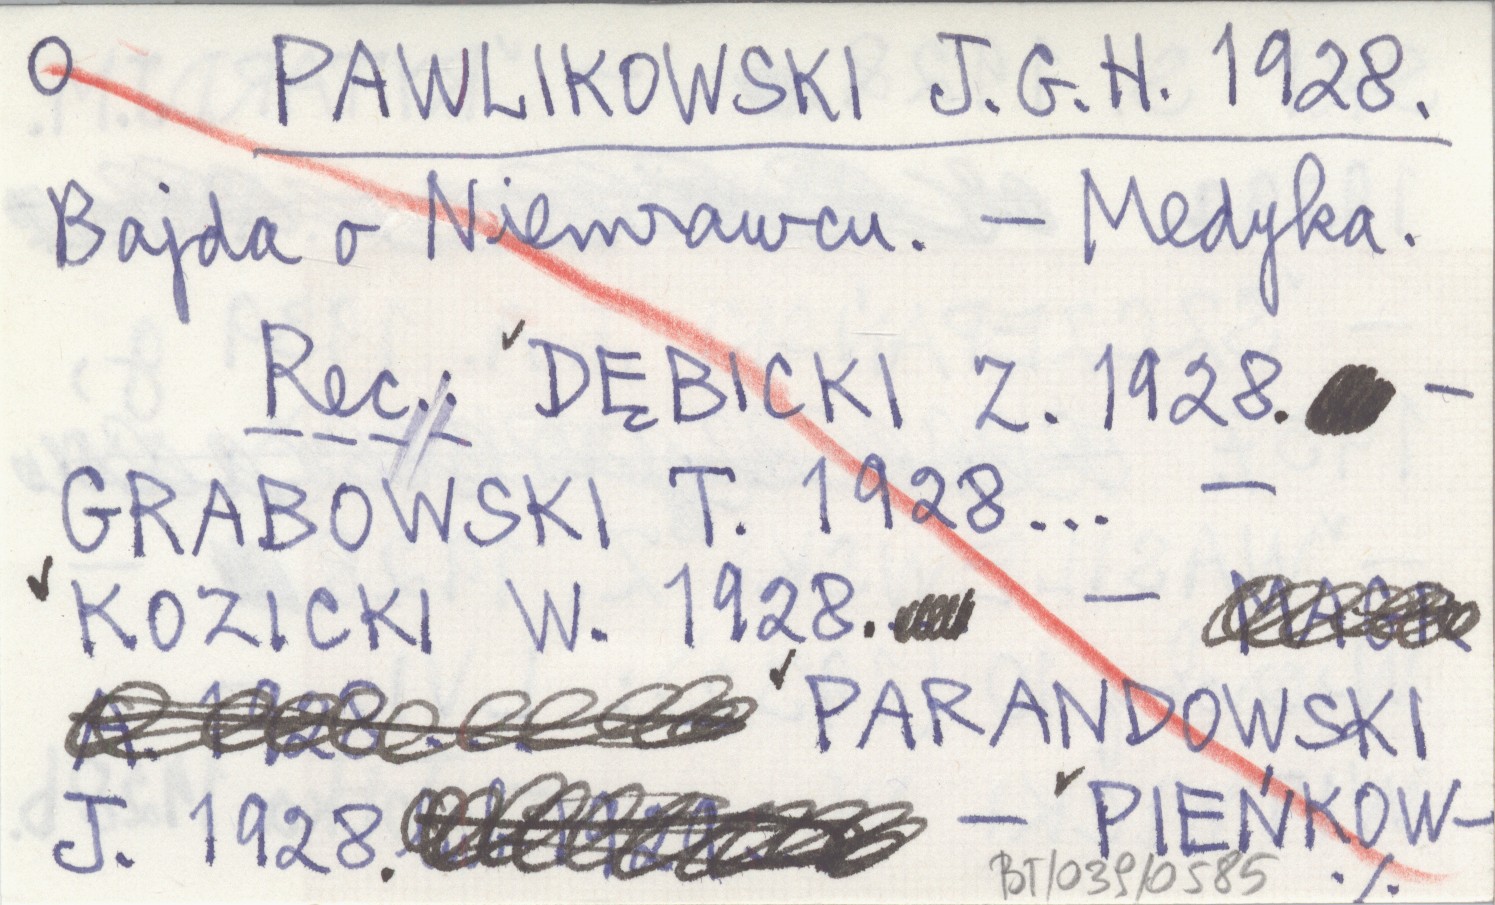 O PAWLIKOWSKI J.G.H. 1928.
Bajda o Niemrawcu. – Medyka.
Rec.: DĘBICKI Z. 1928. –
GRABOWSKI T. 1928... –
KOZICKI W. 1928. –
A. 1928... PARANDOWSKI
J. 1928. – PIEŃKOW-
BT/039/0585 ./.